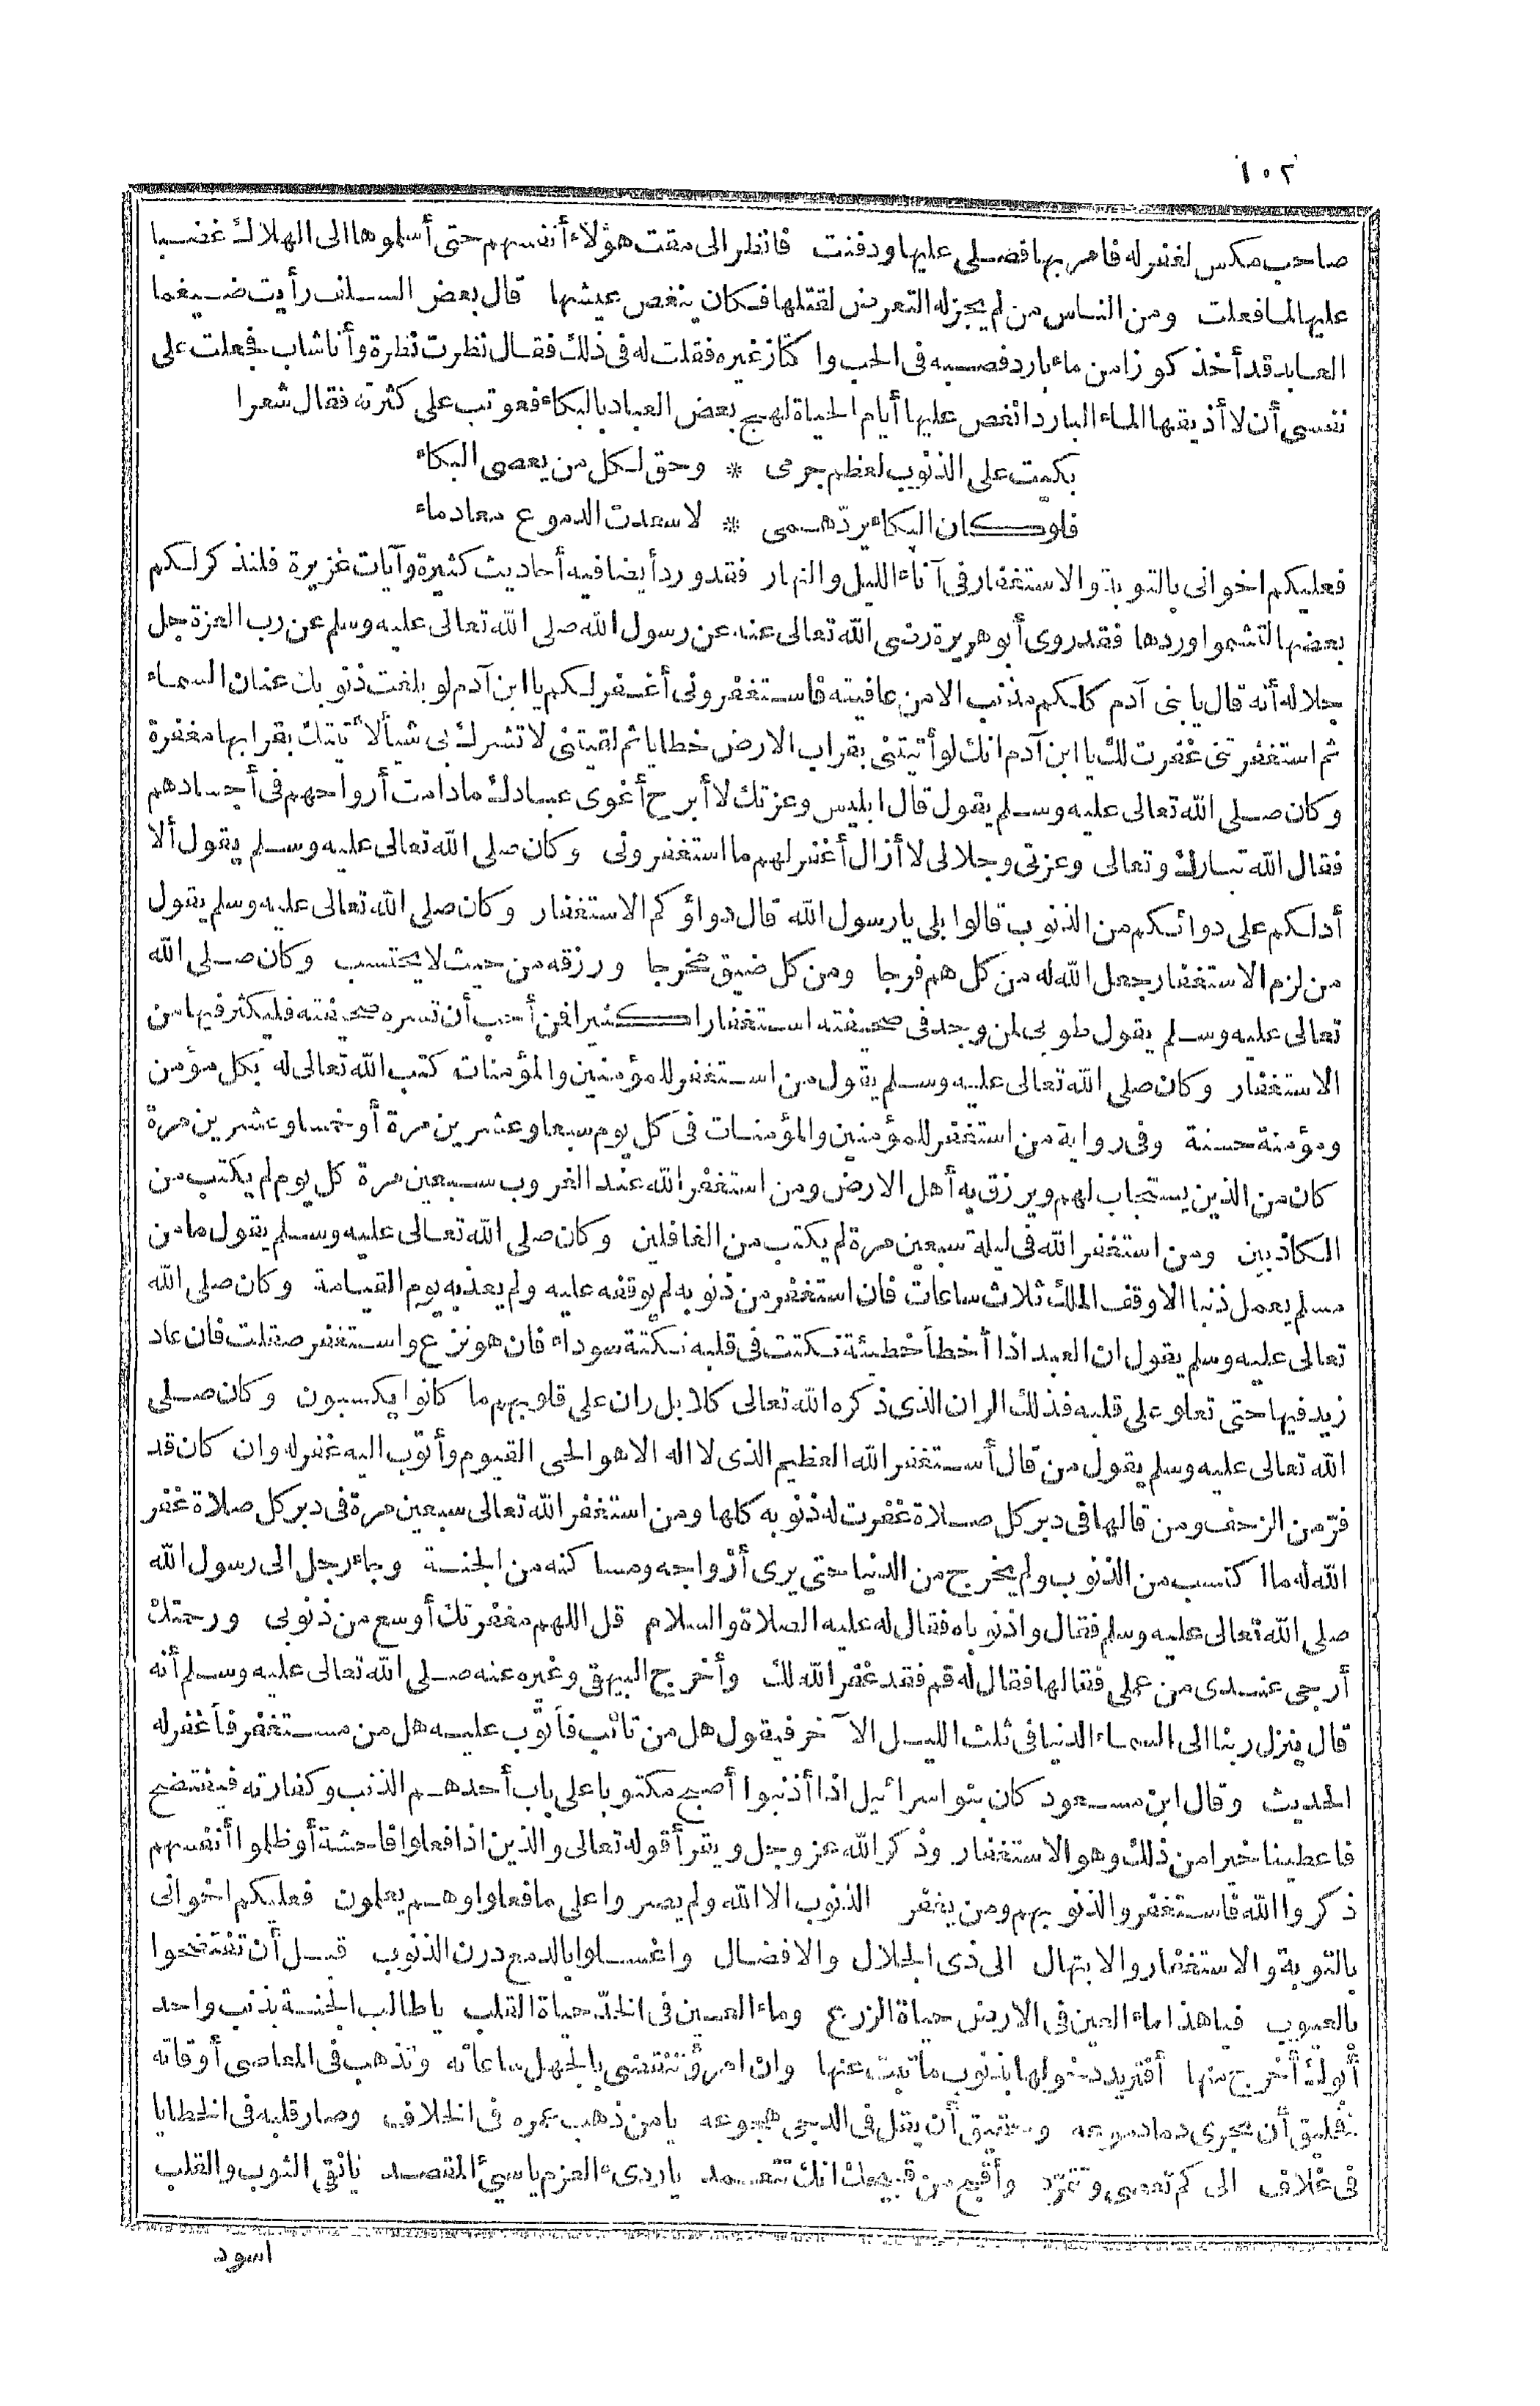 ١٠٢
صاحب مكس لغفر له فامر بها فصلى عليها ودفنت فانظر الى مقت هؤلاء أنفسهم حتى أسلموها الى الهلاك غضبا
عليها لما فعلت ومن الناس من لم يجز له التعرض لقتلها فكان ينغص عيشها قال بعض السلف رأيت ضيغما
العابد قد أخذ كوزا من ماء بارد فصبه فى الحب واكتاز غيره فقلت له فى ذلك فقال نظرت نظرة وأنا شاب فجعلت على
نفسى أن لا أذيقها الماء البارد انغص عليها أيام الحياة لهج بعض العباد بالبكاء فعوتب على كثرته فقال شعرا
بكيت على الذنوب لعظم جرمى * وحق لكل من يعصى البكاء
فلو كان البكاء يردّ همى * لاسعدت الدموع معا دماء
فعليكم اخوانى بالتوبة والاستغفار فى آناء الليل والنهار فقد ورد أيضا فيه أحاديث كثيرة وآيات غزيرة فلنذكر لكم
بعضها لتشموا وردها فقد روى أبو هريرة رضى الله تعالى عنه عن رسول الله صلى الله تعالى عليه وسلم عن رب العزة جل
جلاله أنه قال يا بنى آدم كلكم مذنب الا من عافيته فاستغفرونى أغفر لكم يا ابن آدم لو بلغت ذنوبك عنان السماء
ثم استغفرتنى غفرت لك يا ابن آدم انك لو أتيتنى بقراب الارض خطايا ثم لقيتنى لا تشرك بى شيأ لأتيتك بقرابها مغفرة
وكان صلى الله تعالى عليه وسلم يقول قال ابليس وعزتك لا أبرح أغوى عبادك ما دامت أرواحهم فى أجسادهم
فقال الله تبارك وتعالى وعزتى وجلالى لا أزال أغفر لهم ما استغفرونى وكان صلى الله تعالى عليه وسلم يقول ألا
أدلكم على دوائكم من الذنوب قالوا بلى يا رسول الله قال دواؤكم الاستغفار وكان صلى الله تعالى عليه وسلم يقول
من لزم الاستغفار جعل الله له من كل هم فرجا ومن كل ضيق مخرجا ورزقه من حيث لا يحتسب وكان صلى الله
تعالى عليه وسلم يقول طوبى لمن وجد فى صحيفته استغفارا كثيرا فمن أحب أن تسره صحيفته فليكثر فيها من
الاستغفار وكان صلى الله تعالى عليه وسلم يقول من استغفر للمؤمنين والمؤمنات كتب الله تعالى له بكل مؤمن
ومؤمنة حسنة وفى رواية من استغفر للمؤمنين والمؤمنات فى كل يوم سبعا وعشرين مرة أو خمسا وعشرين مرة
كان من الذين يستجاب لهم ويرزق به أهل الارض ومن استغفر الله عند الغروب سبعين مرة كل يوم لم يكتب من
الكاذبين ومن استغفر الله فى ليلة سبعين مرة لم يكتب من الغافلين وكان صلى الله تعالى عليه وسلم يقول ما من
مسلم يعمل ذنبا الا وقف الملك ثلاث ساعات فان استغفر من ذنوبه لم يوقفه عليه ولم يعذبه يوم القيامة وكان صلى الله
تعالى عليه وسلم يقول ان العبد اذا أخطأ خطيئة نكتت فى قلبه نكتة سوداء فان هو نزع واستغفر صقلت فان عاد
زيد فيها حتى تعلو على قلبه فذلك الران الذى ذكره الله تعالى كلا بل ران على قلوبهم ما كانوا يكسبون وكان صلى
الله تعالى عليه وسلم يقول من قال أستغفر الله العظيم الذى لا اله الا هو الحى القيوم وأتوب اليه غفر له وان كان قد
فرّ من الزحف ومن قالها فى دبر كل صلاة غفرت له ذنوبه كلها ومن استغفر الله تعالى سبعين مرة فى دبر كل صلاة غفر
الله له ما اكتسب من الذنوب ولم يخرج من الدنيا حتى يرى أزواجه ومساكنه من الجنة وجاء رجل الى رسول الله
صلى الله تعالى عليه وسلم فقال واذنوباه فقال له عليه الصلاة والسلام قل اللهم مغفرتك أوسع من ذنوبى ورحمتك
أرجى عندى من عملى فقالها فقال له قم فقد غفر الله لك وأخرج البيهقى وغيره عنه صلى الله تعالى عليه وسلم أنه
قال ينزل ربنا الى السماء الدنيا فى ثلث الليل الآخر فيقول هل من تائب فأتوب عليه هل من مستغفر فأغفر له
الحديث وقال ابن مسعود كان بنو اسرائيل اذا أذنبوا أصبح مكتوبا على باب أحدهم الذنب وكفارته فيفتضح
فاعطينا خيرا من ذلك وهو الاستغفار وذكر الله عز وجل ويقرأ قوله تعالى والذين اذا فعلوا فاحشة أو ظلموا أنفسهم
ذكروا الله فاستغفروا لذنوبهم ومن يغفر الذنوب الا الله ولم يصروا على ما فعلوا وهم يعلمون فعليكم اخوانى
بالتوبة والاستغفار والابتهال الى ذى الجلال والافضال واغسلوا بالدمع درن الذنوب قبل أن تفتضحوا
بالعيوب فيا هذا ماء العين فى الارض حياة الزرع وماء العين فى الخدّ حياة القلب يا طالب الجنة بذنب واحد
أبوك أخرج منها أفتريد دخولها بذنوب ما تبت عنها وان امرؤ تنقضى بالجهل ساعاته وتذهب فى المعاصى أوقاته
لخليق أن تجرى دما دموعه وحقيق أن يقل فى الدجى هجوعه يا من ذهب عمره فى الخلاف وصار قلبه فى الخطايا
فى غلاف الى كم تعصى وتتمرّد وأقبح من قبيحك انك تتعمد يا ردىء العزم يا سيئ المقصد يا نقى الثوب والقلب
اسود